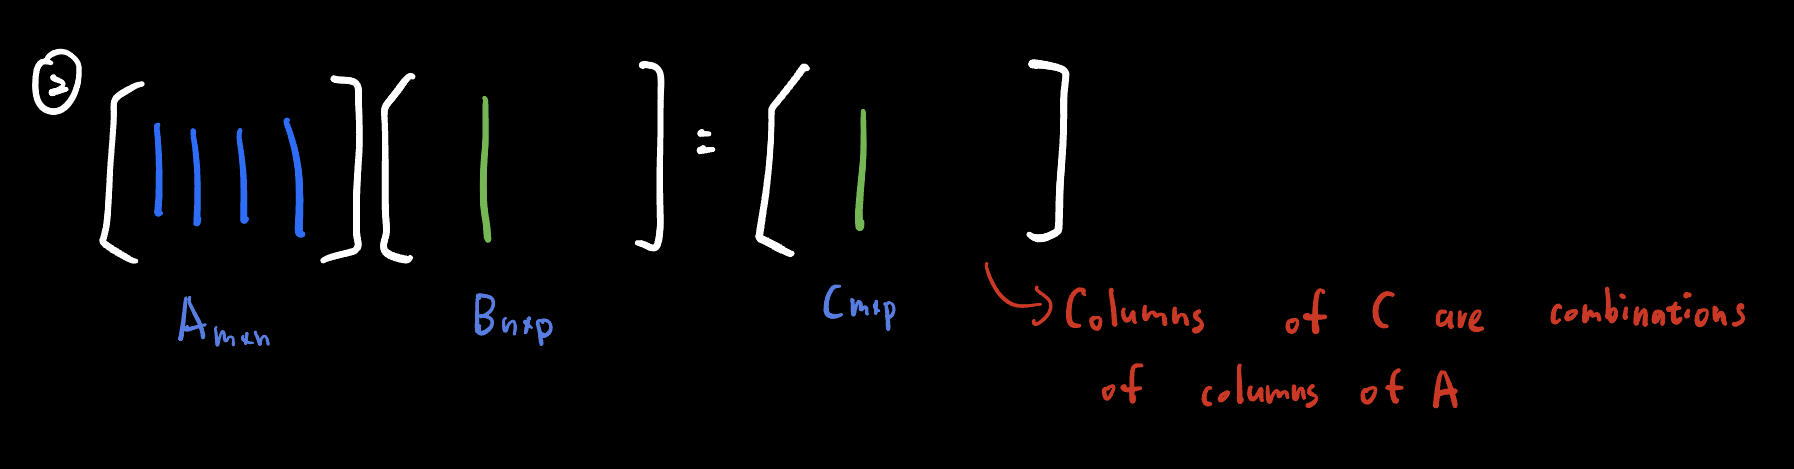 ②
=
A m×n
B n×p
C m×p
Columns of C are combinations
of columns of A